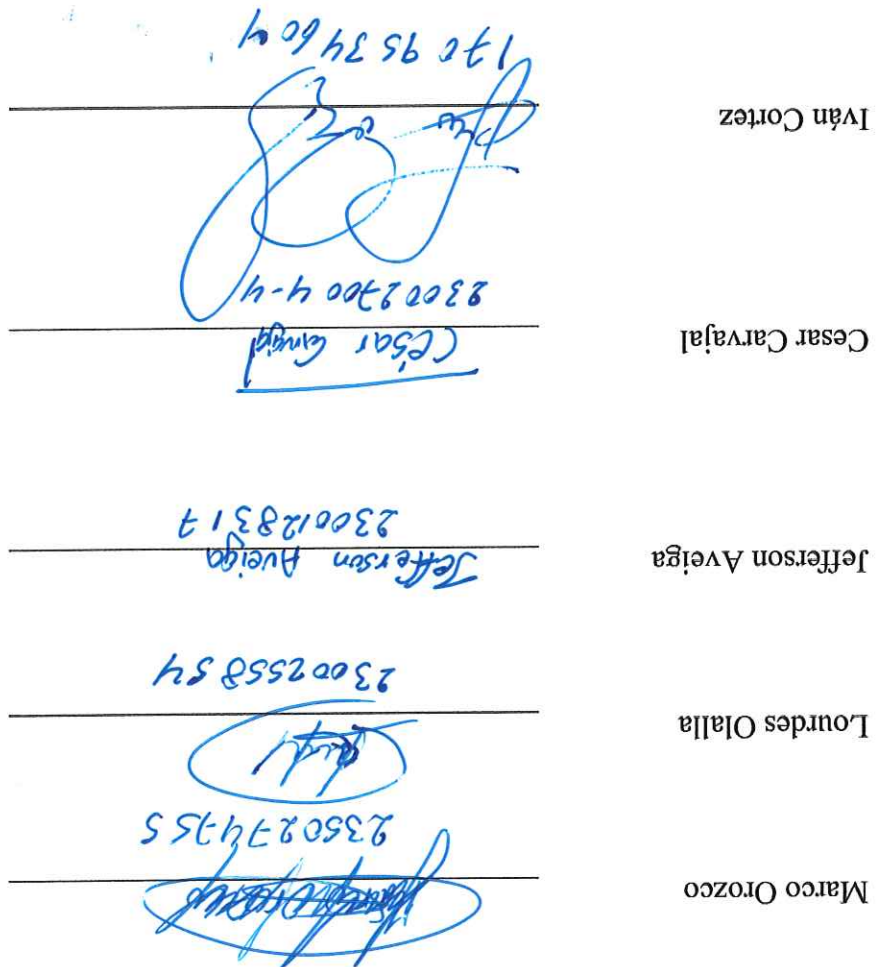 Marco Orozco
2350274755
Lourdes Olalla
2300255854
Jefferson Aveiga Jefferson Aveiga
2300128317
Cesar Carvajal César Carvajal
230027004-4
Iván Cortez
1709534604